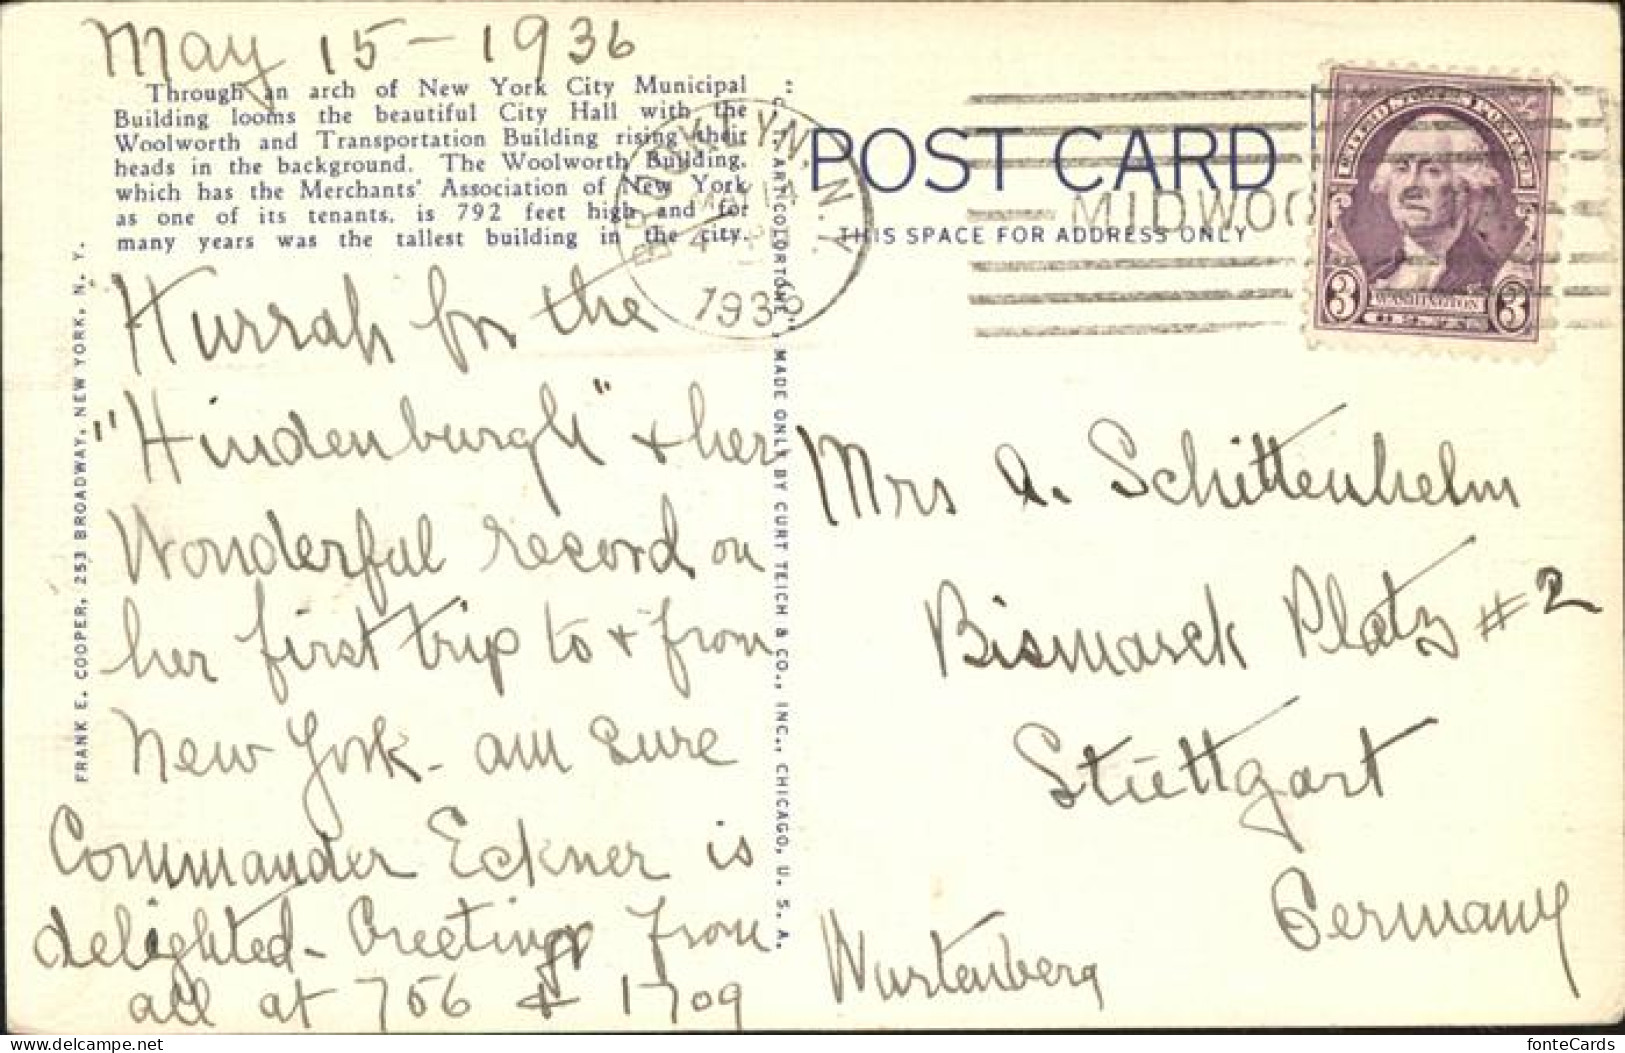 May 15 - 1936
Through an arch of New York City Municipal
Building looms the beautiful City Hall with the
Woolworth and Transportation Building rising their
heads in the background. The Woolworth Building,
which has the Merchants' Association of New York
as one of its tenants, is 792 feet high and for
many years was the tallest building in the city.
Hurrah for the
"Hindenburgh" + her
Wonderful record on
her first trip to + from
New York - am sure
Commander Eckner is
delighted - Greetings from
all at 756 + 1709
FRANK E. COOPER, 253 BROADWAY, NEW YORK, N. Y.
"C. T. ART-COLORTONE", MADE ONLY BY CURT TEICH & CO., INC., CHICAGO, U. S. A.
BROOKLYN, N. Y.
POST CARD
THIS SPACE FOR ADDRESS ONLY
3 WASHINGTON 3
Mrs A. Schittenhelm
Bismarck Platz #2
Stüttgart
Germany
Wurtenberg
delcampe.net
fonteCards